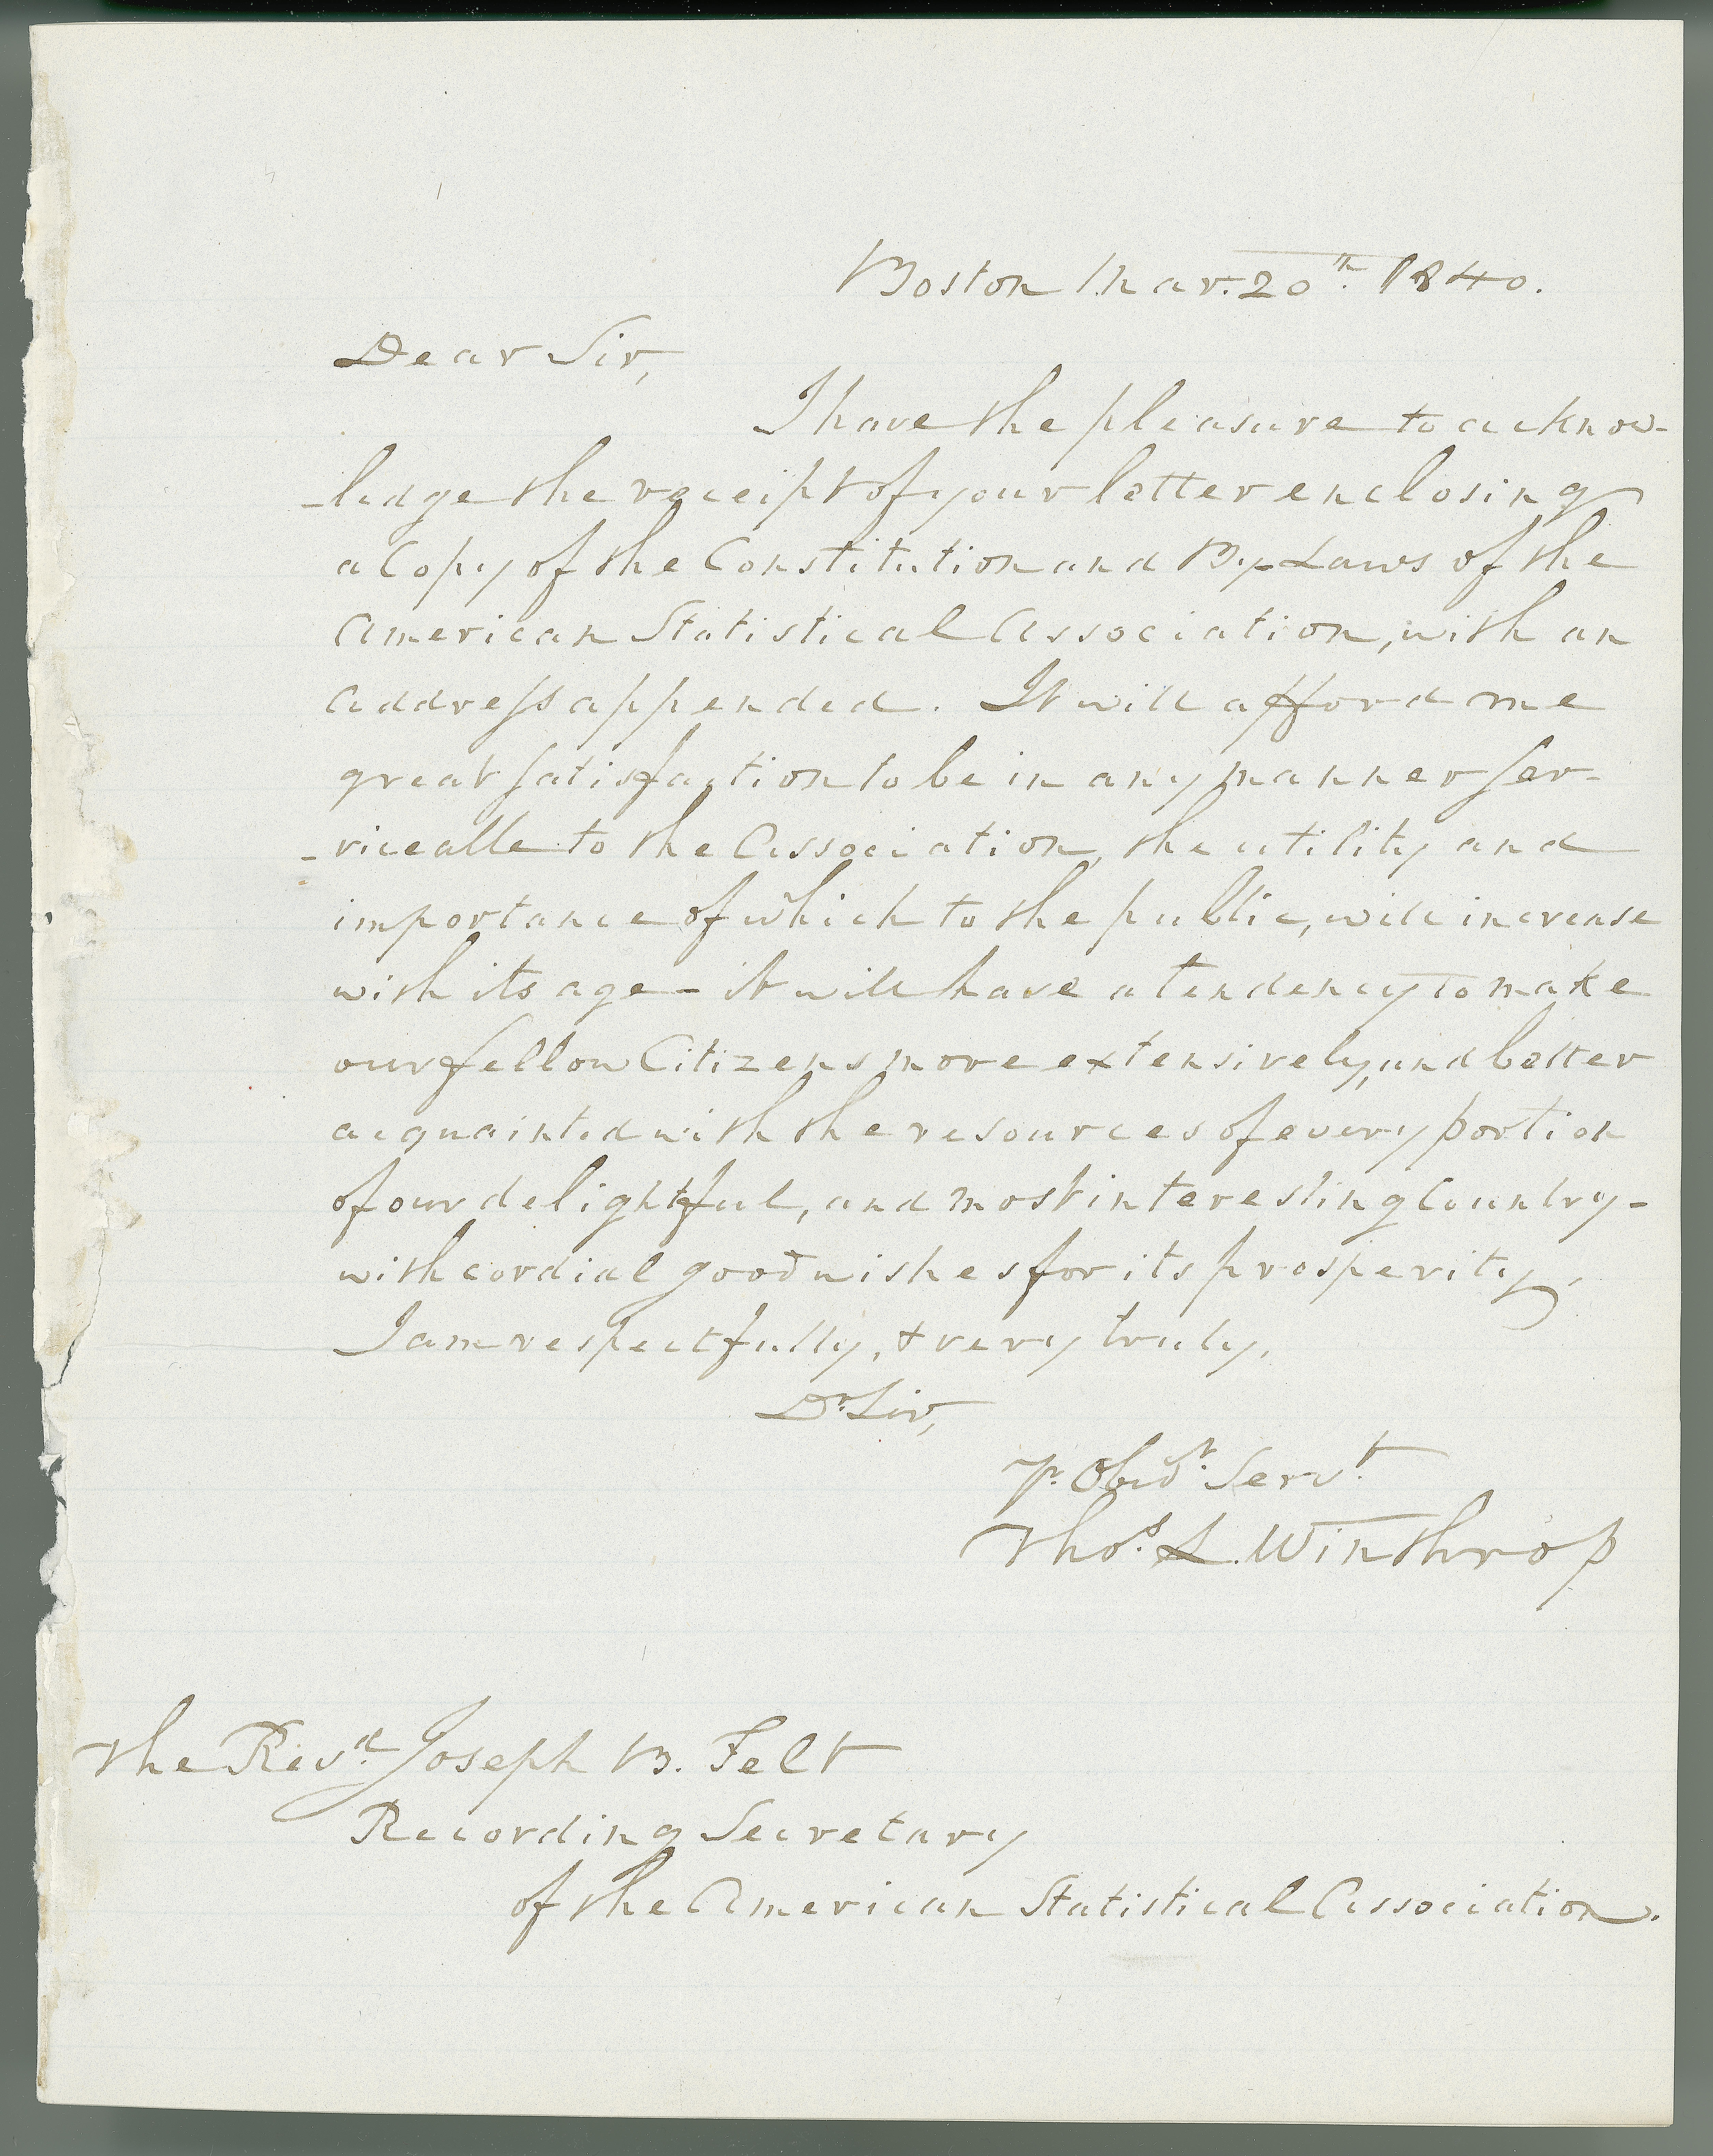 Boston Mar. 20th. 1840.
Dear Sir,
I have the pleasure to acknow-
-ledge the receipt of your letter enclosing
a Copy of the Constitution and By-Laws of the
American Statistical Association, with an
Address appended. It will afford me
great satisfaction to be in any manner ser-
-viceable to the Association, the utility and
importance of which to the public, will increase
with its age - it will have a tendency to make
our fellow Citizens more extensively, and better
acquainted with the resources of every portion
of our delightful, and most interesting Country -
with cordial good wishes for its prosperity,
I am respectfully, & very truly,
Dr. Sir,
Yr. Obedt. Servt.
Thos. L. Winthrop
The Revd. Joseph B. Felt
Recording Secretary
of the American Statistical Association.